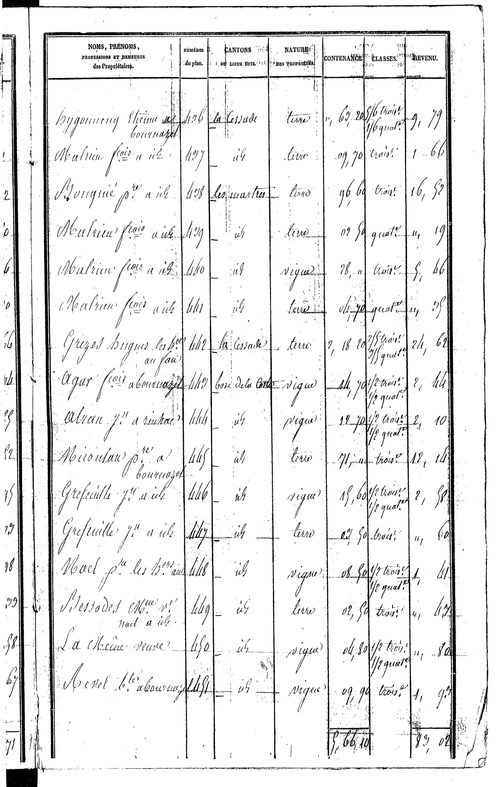 NOMS, PRÉNOMS, PROFESSIONS ET DEMEURES des Propriétaires. NUMÉROS du plan. CANTONS OU LIEUX DITS. NATURE DES PROPRIÉTÉS. CONTENANCE. CLASSES. REVENU.
Etienne a bournazel 436 la Cessade terre 63, 20 5/6 trois. 1/6 quat. 9, 79
Matrieu frcois a id. 437 id terre 09, 70 trois. 1 66
pre a id 438 les martres terre 96, 60 trois. 16, 52
Matrieu frcois a id 439 id terre 02 50 quat. " 19
Matrieu frcois a id 440 id vigne 28, " trois. 5, 46
Matrieu frcois a id 441 id terre 04, 70 quat. 35
Grezes hugues les hers au fau 442 la Cessade terre 2, 18 20 trois. 24, 62
Agar frcois a bournazel 443 bosc de la Coste vigne 14, 70 1/2 trois. 1/2 quat. 2, 44
jn a 444 id vigne 12 70 1/2 trois. 1/2 quat. 2, 10
pre a bournazel 445 id terre 71, " trois. 12, 14
Grefeuille jn a id 446 id vigne 15, 60 1/2 trois. 1/2 quat. 2, 58
Grefeuille jn a id 447 id terre 03, 50 trois. " 60
Noel pre les hers 448 id vigne 08, 50 1/2 trois. 1/2 quat. 1, 41
Bessodes Mme ve noel a id. 449 id terre 02, 50 trois. " 43
La Même veuve 450 id vigne 04, 80 1/2 trois. 1/2 quat. " 80
Revel bte a bournazel 451 id vigne 09, 90 trois. 1, 93
5, 66, 10 83, 02